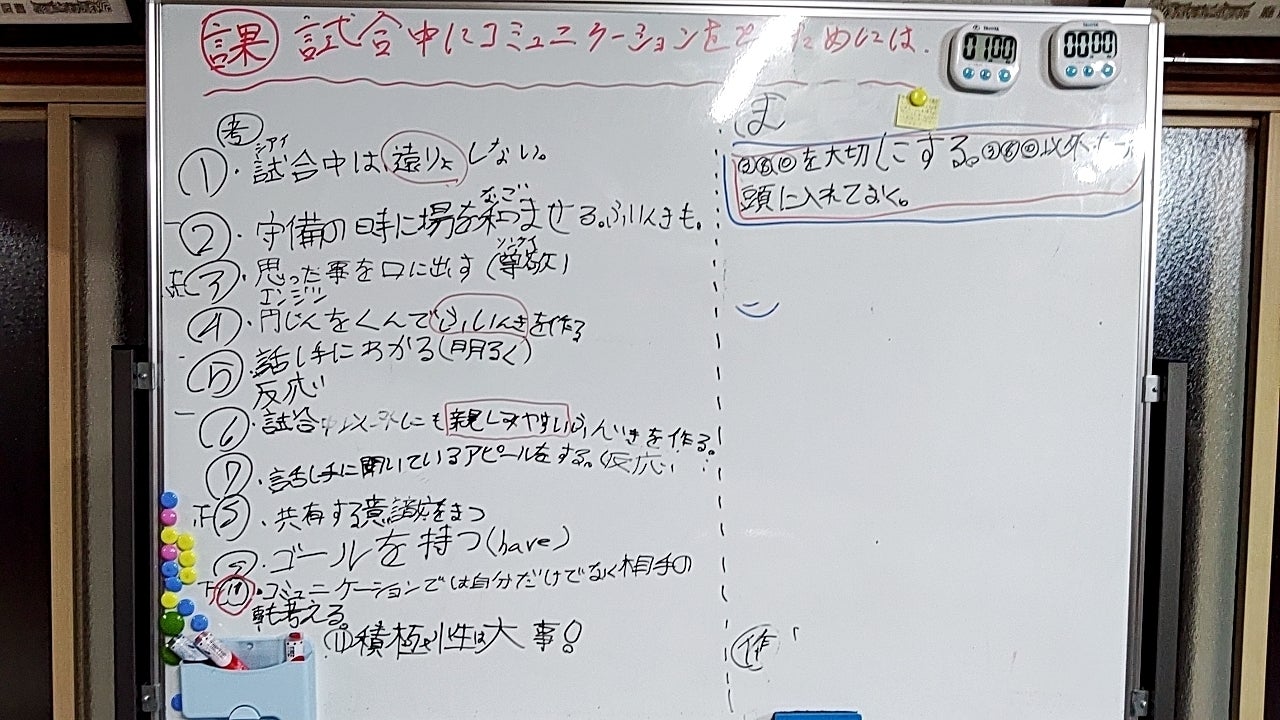 課 試合中にコミュニケーションを ためには.
01:00
00:00
考
シアイ
① ・試合中は、遠りょしない。
なご
② ・守備の時に場を和ませる。ふいんきも。
ソンケイ
③ ・思った事を口に出す(尊敬)
エンジン
④ ・円じんをくんでふいんきを作る
⑤ ・話し手にわかる(明るく)
反応
⑥ ・試合中以外にも親しみやすいふんいきを作る。
⑦ ・話し手に聞いているアピールをする。(反応)
⑧ ・共有する意識をもつ
⑨ ・ゴールを持つ(have)
⑩ ・コミュニケーションでは自分だけでなく相手の
事も考える。
⑪積極性は大事!
ま
を大切にする。 以外
頭に入れておく。
作